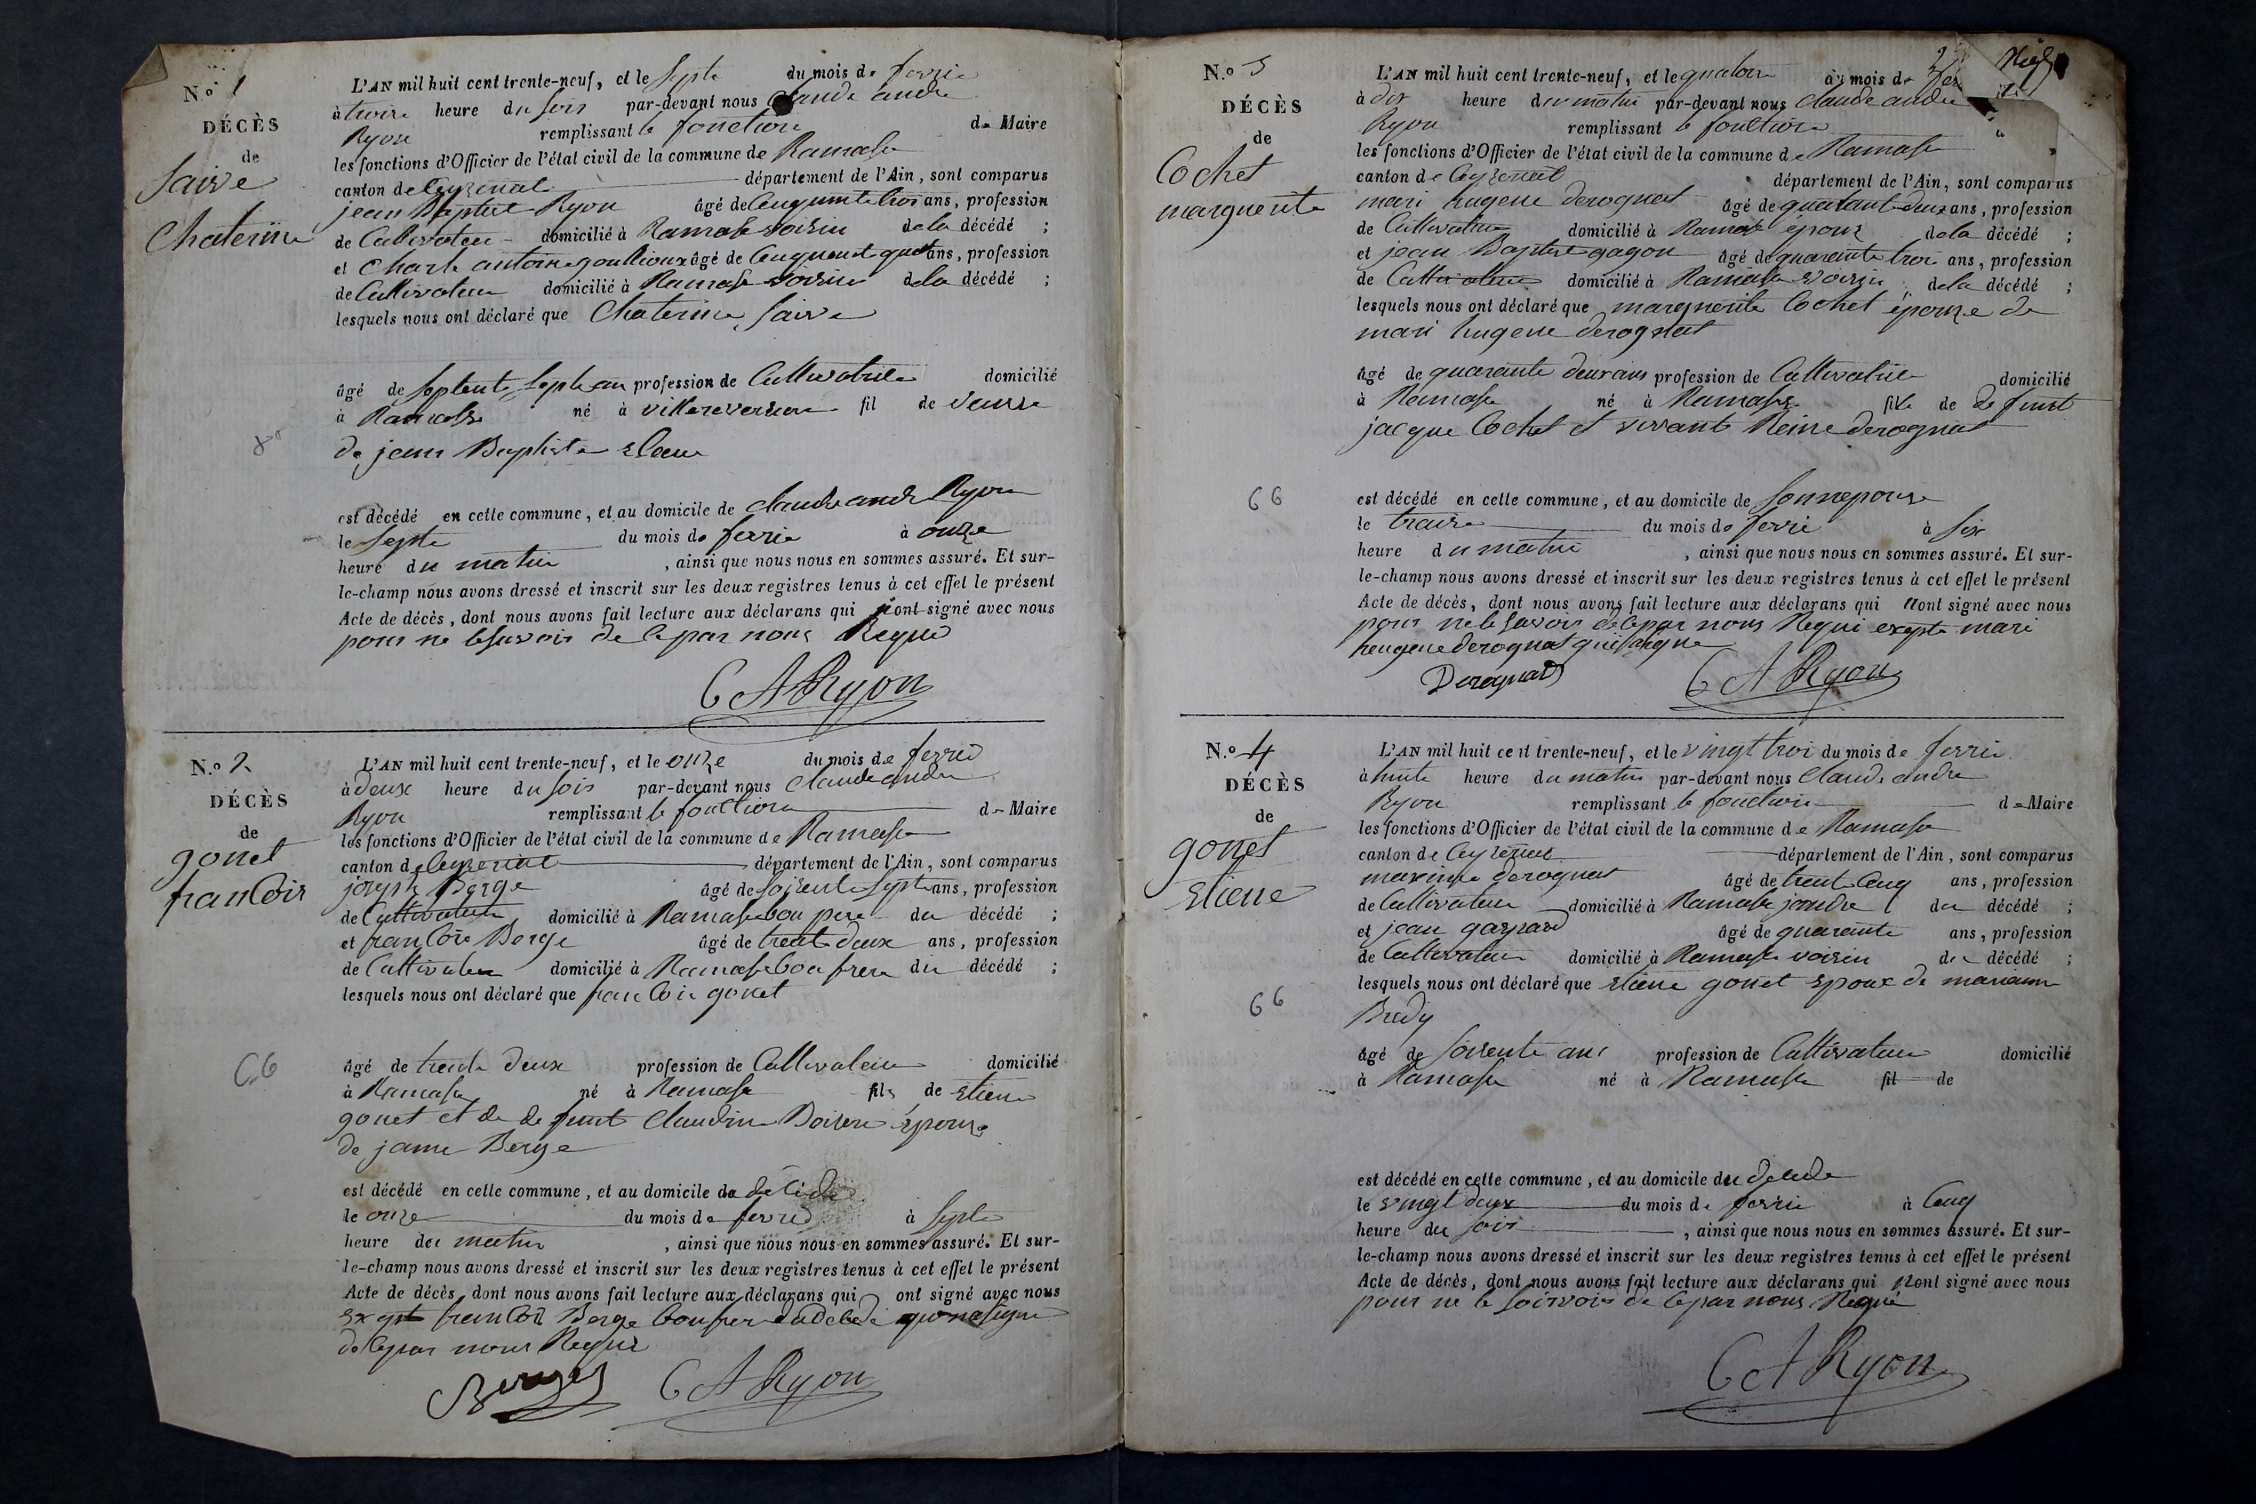 N.o 1
DÉCÈS
de
Saive
Chaterine
L'AN mil huit cent trente-neuf, et le septe du mois de fevrie
à troire heure du soir par-devant nous Claude andre
Ryon remplissant le fonctione de Maire
les fonctions d'Officier de l'état civil de la commune de Ramasse
canton de Ceyzeriat département de l'Ain, sont comparus
jean Baptiste Ryon âgé de Cinquante trois ans, profession
de Cultivateur domicilié à Ramasse voisin de la décédé ;
et Charle antoine goullioux âgé de Cinquente quat ans, profession
de Cultivateur domicilié à Ramasse voisin de la décédé ;
lesquels nous ont déclaré que Chaterine Saive
âgé de septente septe an profession de Cultivatrice domicilié
à Ramasse né à villereversure fil de veuve
de jean Baptiste
80
est décédé en cette commune, et au domicile de claude andre Ryon
le septe du mois de fevrie à onze
heure du matin , ainsi que nous nous en sommes assuré. Et sur-
le-champ nous avons dressé et inscrit sur les deux registres tenus à cet effet le présent
Acte de décès, dont nous avons fait lecture aux déclarans qui n'ont signé avec nous
pour ne le savoir de Ce par nous Requi
C A Ryon
N.o 2
DÉCÈS
de
gonet
franCois
L'AN mil huit cent trente-neuf, et le onze du mois de fevrie
à deux heure du soir par-devant nous Claude andre
Ryon remplissant le fonctione de Maire
les fonctions d'Officier de l'état civil de la commune de Ramasse
canton de Ceyzeriat département de l'Ain, sont comparus
joseph Berge âgé de soisente septe ans, profession
de Cultivateur domicilié à Ramasse bou pere du décédé ;
et franCois Berge âgé de trente deux ans, profession
de Cultivateur domicilié à Ramasse bou frere du décédé ;
lesquels nous ont déclaré que franCois gonet
66
âgé de trente deux profession de Cultivateur domicilié
à Ramasse né à Ramasse fils de etiene
gonet et de de funt Claudine Boiron épouse
de jeanne Berge
est décédé en cette commune, et au domicile du deCide
le onze du mois de fevrie à septe
heure du matin , ainsi que nous nous en sommes assuré. Et sur-
le-champ nous avons dressé et inscrit sur les deux registres tenus à cet effet le présent
Acte de décès, dont nous avons fait lecture aux déclarans qui ont signé avec nous
franCois Berge bou frere du decede qui na signe
de Ce par nous Requi
Berges C A Ryon
N.o 3
DÉCÈS
de
Cochet
marguerite
L'AN mil huit cent trente-neuf, et le quatorre du mois de fev
à dix heure du matin par-devant nous Claude andre
Ryon remplissant le fonctione
les fonctions d'Officier de l'état civil de la commune de Ramasse
canton de Ceyzeriat département de l'Ain, sont comparus
mari hugene derognat âgé de quarante deux ans, profession
de Cultivateur domicilié à Ramasse époux de la décédé ;
et jean Baptiste gagon âgé de quarente troi ans, profession
de Cultivateur domicilié à Ramasse voisin de la décédé ;
lesquels nous ont déclaré que marguerite Cochet épouze de
mari hugene derognat
âgé de quarante deux ans profession de Cultivatrice domicilié
à Ramasse né à Ramasse file de de funt
jacque Cochet et vivante Reine derognat
66
est décédé en cette commune, et au domicile de sonnepouse
le traize du mois de fevrie à six
heure du matin , ainsi que nous nous en sommes assuré. Et sur-
le-champ nous avons dressé et inscrit sur les deux registres tenus à cet effet le présent
Acte de décès, dont nous avons fait lecture aux déclarans qui n'ont signé avec nous
pour ne le savoir de Ce par nous Requi exepte mari
heugene derognat qui a signe
Derognat C A Ryon
N.o 4
DÉCÈS
de
gonet
etiene
L'AN mil huit cent trente-neuf, et le vingt troi du mois de fevrie
à huite heure du matin par-devant nous Claude andre
Ryon remplissant le fonctione de Maire
les fonctions d'Officier de l'état civil de la commune de Ramasse
canton de Ceyzeriat département de l'Ain, sont comparus
maxime derognat âgé de trente Cinq ans, profession
de Cultivateur domicilié à Ramasse jendre du décédé ;
et jean gaspard âgé de quarente ans, profession
de Cultivateur domicilié à Ramasse voisin du décédé ;
lesquels nous ont déclaré que etiene gonet epoux de marianne
Bredy
66
âgé de soisente ans profession de Cultivateur domicilié
à Ramasse né à Ramasse fil de
est décédé en cette commune, et au domicile du decide
le vingt deux du mois de fevrie à Cinq
heure du soir , ainsi que nous nous en sommes assuré. Et sur-
le-champ nous avons dressé et inscrit sur les deux registres tenus à cet effet le présent
Acte de décès, dont nous avons fait lecture aux déclarans qui n'ont signé avec nous
pour ne le soirvoir de Ce par nous Requi
C A Ryon